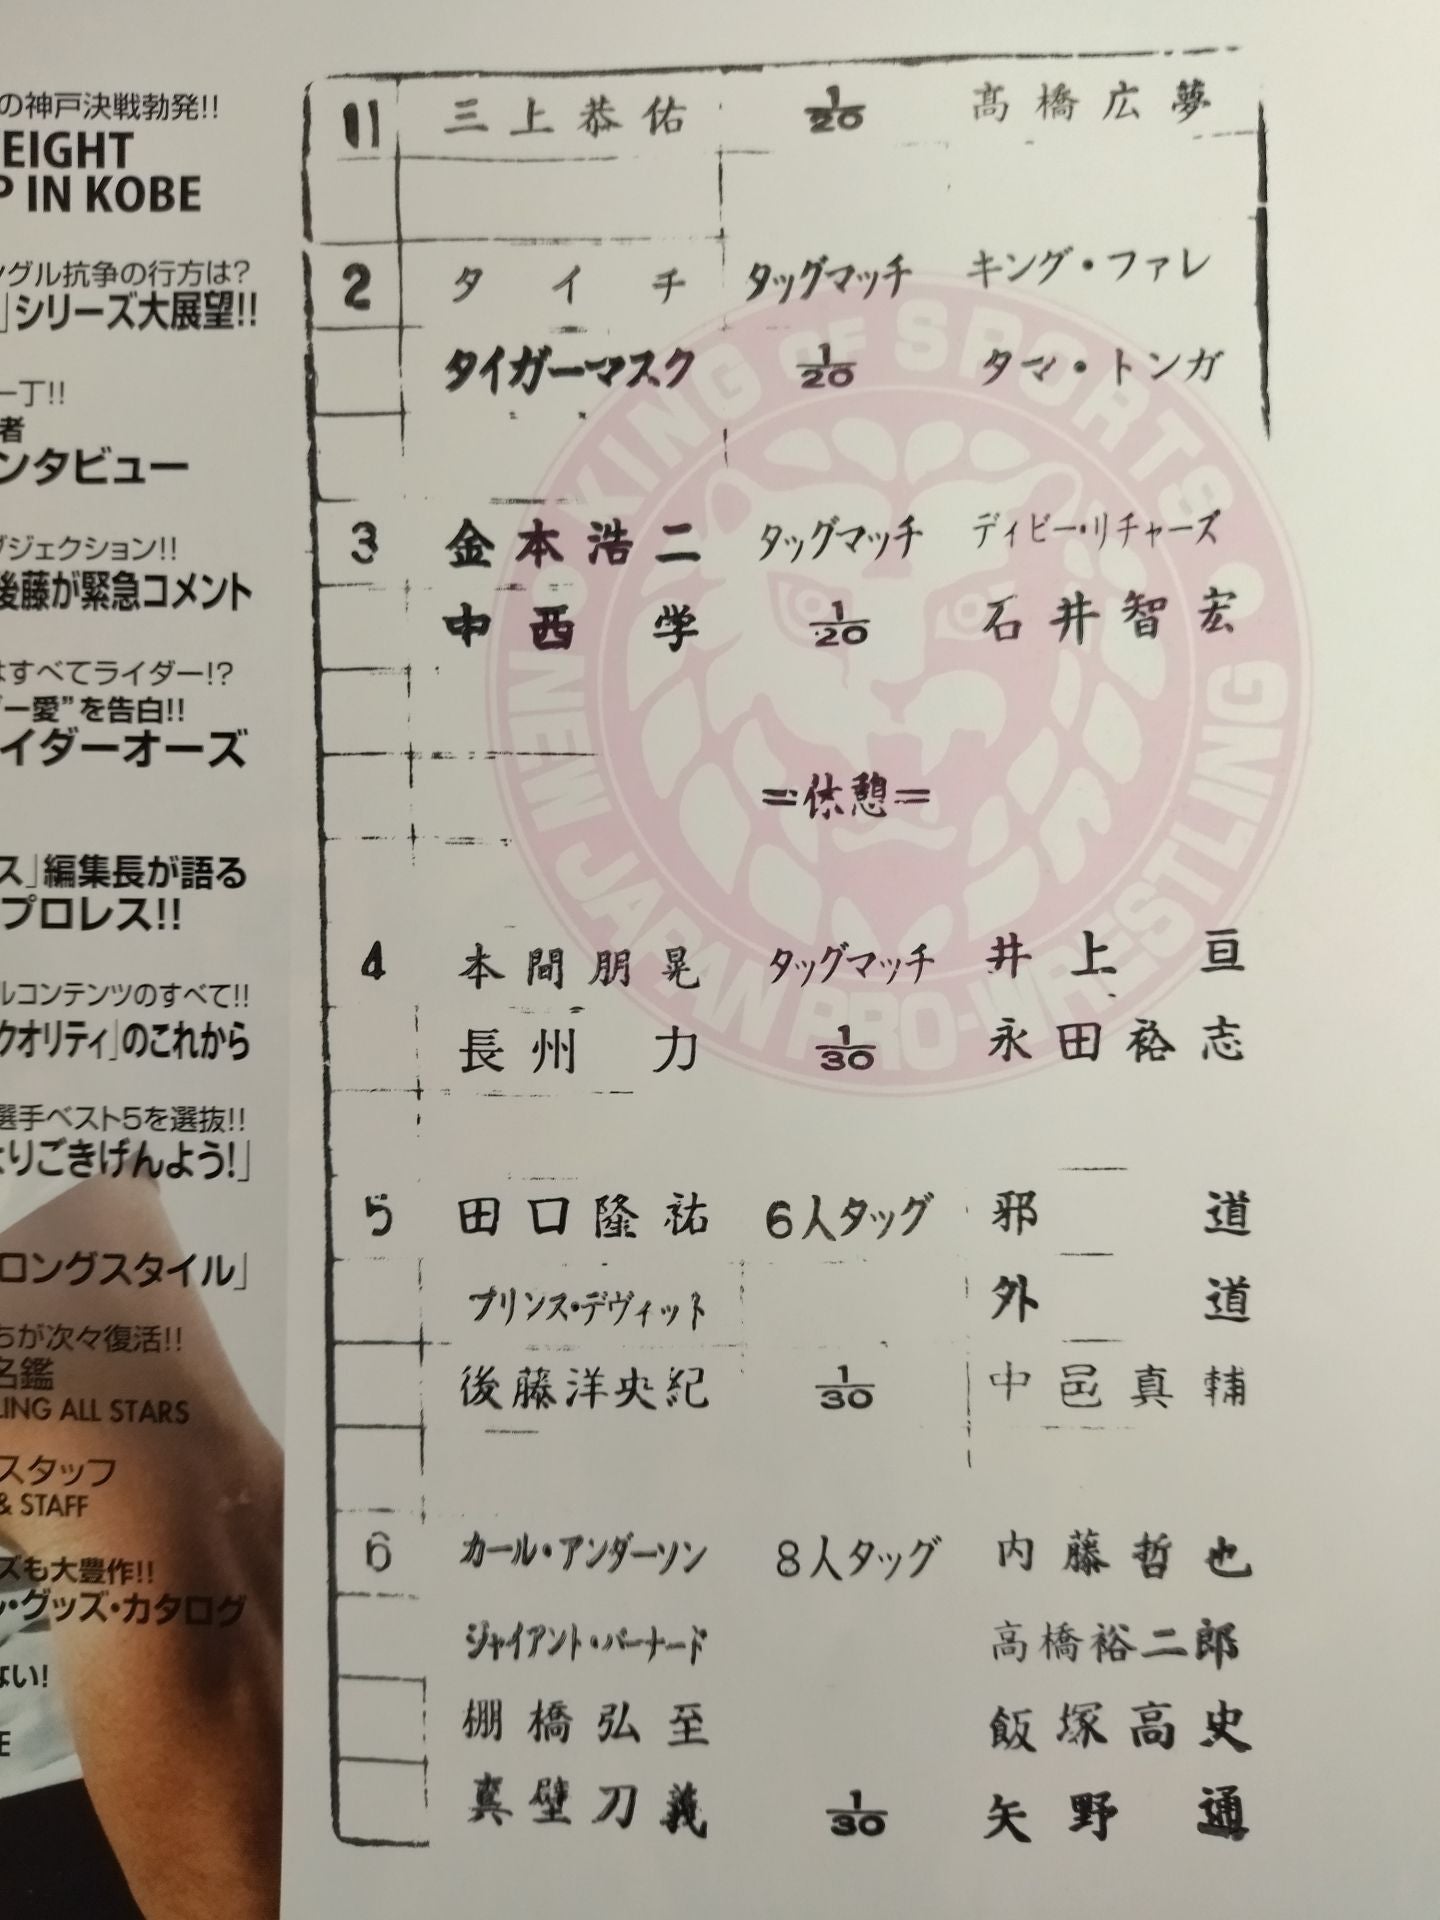 の神戸決戦勃発!!
EIGHT
P IN KOBE
ングル抗争の行方は?
」シリーズ大展望!!
一丁!!
者
ンタビュー
ブジェクション!!
後藤が緊急コメント
はすべてライダー!?
ダー愛”を告白!!
イダーオーズ
ス」編集長が語る
プロレス!!
ルコンテンツのすべて!!
クオリティ」のこれから
選手ベスト5を選抜!!
よりごきげんよう!」
ロングスタイル」
ちが次々復活!!
名鑑
LING ALL STARS
スタッフ
& STAFF
ズも大豊作!!
ル・グッズ・カタログ
ない!
E
1 三上恭佑 1/20 髙橋広夢
2 タイチ タッグマッチ キング・ファレ
タイガーマスク 1/20 タマ・トンガ
3 金本浩二 タッグマッチ デイビー・リチャーズ
中西学 1/20 石井智宏
=休憩=
4 本間朋晃 タッグマッチ 井上亘
長州力 1/30 永田裕志
5 田口隆祐 6人タッグ 邪道
プリンス・デヴィット 外道
後藤洋央紀 1/30 中邑真輔
6 カール・アンダーソン 8人タッグ 内藤哲也
ジャイアント・バーナード 高橋裕二郎
棚橋弘至 飯塚高史
真壁刀義 1/30 矢野通
KING OF SPORTS
NEW JAPAN PRO-WRESTLING